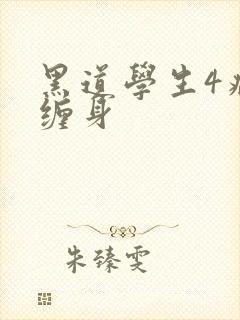 黑道學生4
缠身
朱臻雯